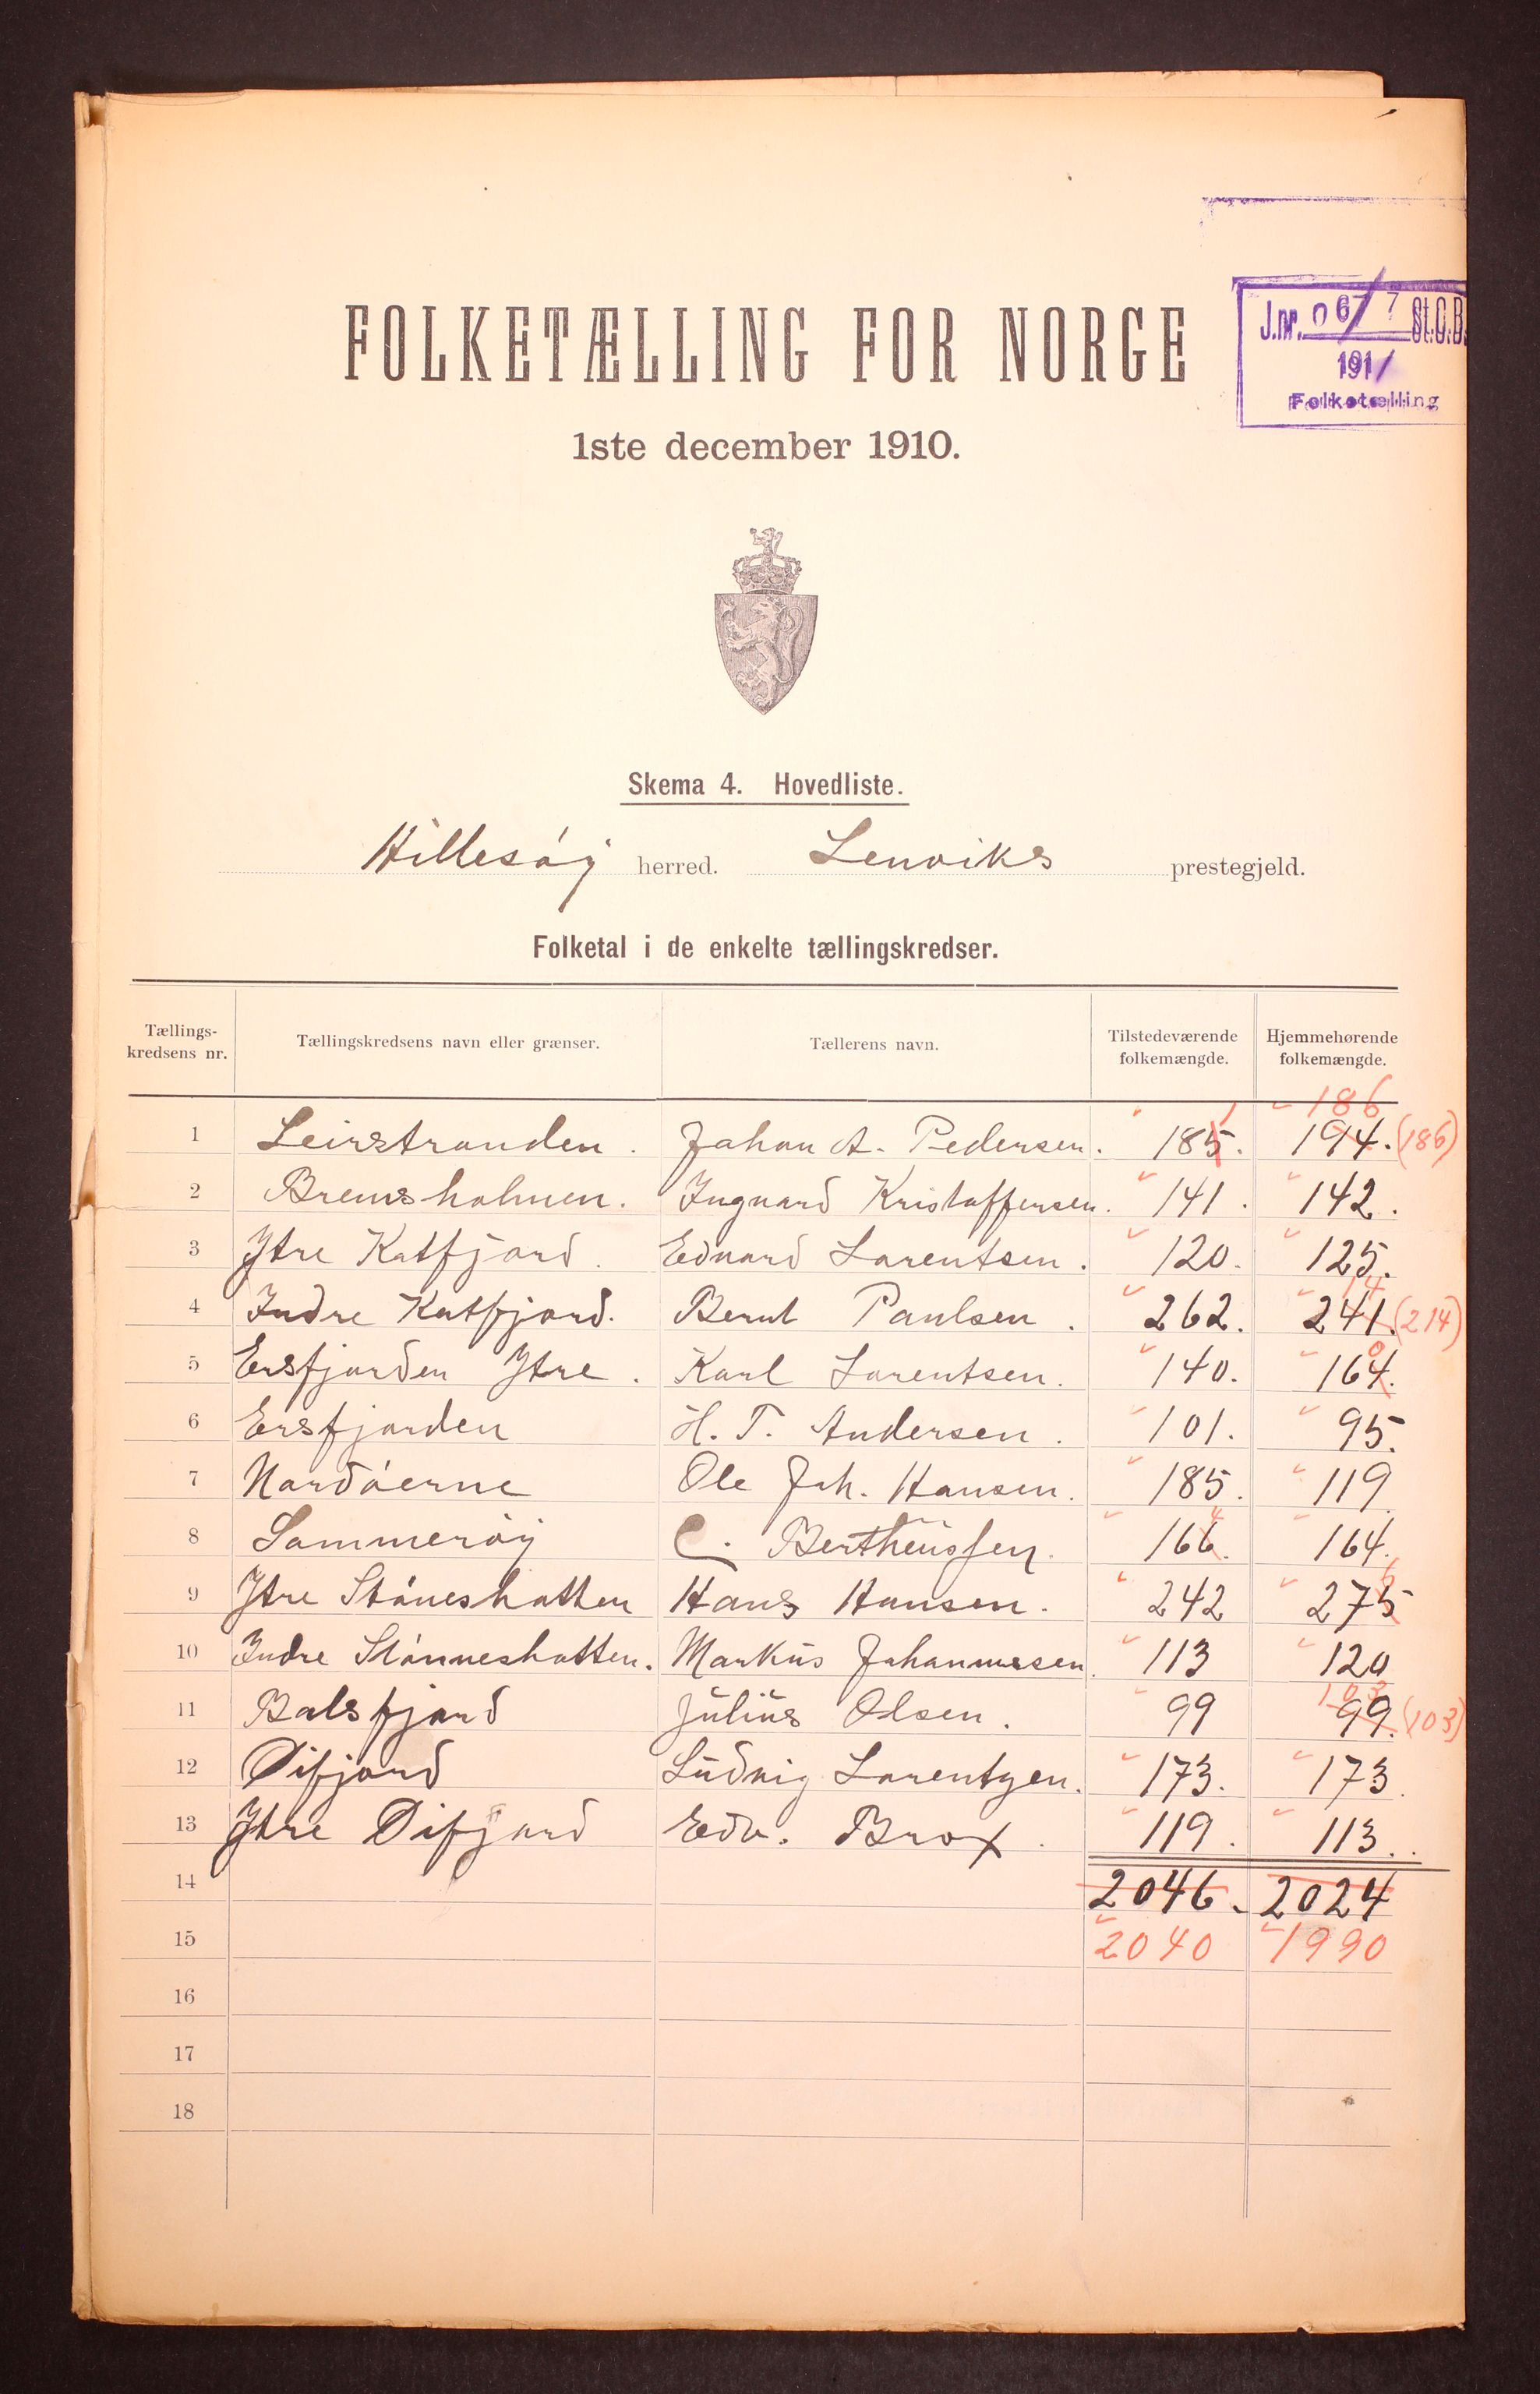 J.nr. 067/7 St.C.B.
1911
Folketælling
FOLKETÆLLING FOR NORGE
1ste december 1910.
Skema 4. Hovedliste.
Hillesøy herred. Lenviks prestegjeld.
Folketal i de enkelte tællingskredser.
Tællings-kredsens nr. Tællingskredsens navn eller grænser. Tællerens navn. Tilstedeværende folkemængde. Hjemmehørende folkemængde.
1 186
1 Leirstranden. Johan A. Pedersen. 185. 194. (186)
2 Bremsholmen. Ingvard Kristoffersen. 141. 142.
3 Ytre Katfjord. Edvard Larentsen. 120. 125.
14
4 Indre Katfjord. Bernt Paulsen. 262. 241. (214)
0
5 Ersfjorden Ytre. Karl Larentsen. 140. 164.
6 Ersfjorden H. T. Andersen. 101. 95.
7 Nordøerne Ole Joh. Hansen. 185. 119
4
8 Sommerøy C. Bertheussen. 166. 164.
6
9 Ytre Støneshatten Hans Hansen. 242 275
10 Indre Stønneshatten. Markus Johannessen. 113 120
103
11 Balsfjord Julius Olsen. 99 99. (103)
12 Øifjord Ludvig Larentzen. 173. 173.
13 Ytre Øifjord Edv. Brox. 119. 113.
14 2046. 2024
15 2040 1990
16
17
18